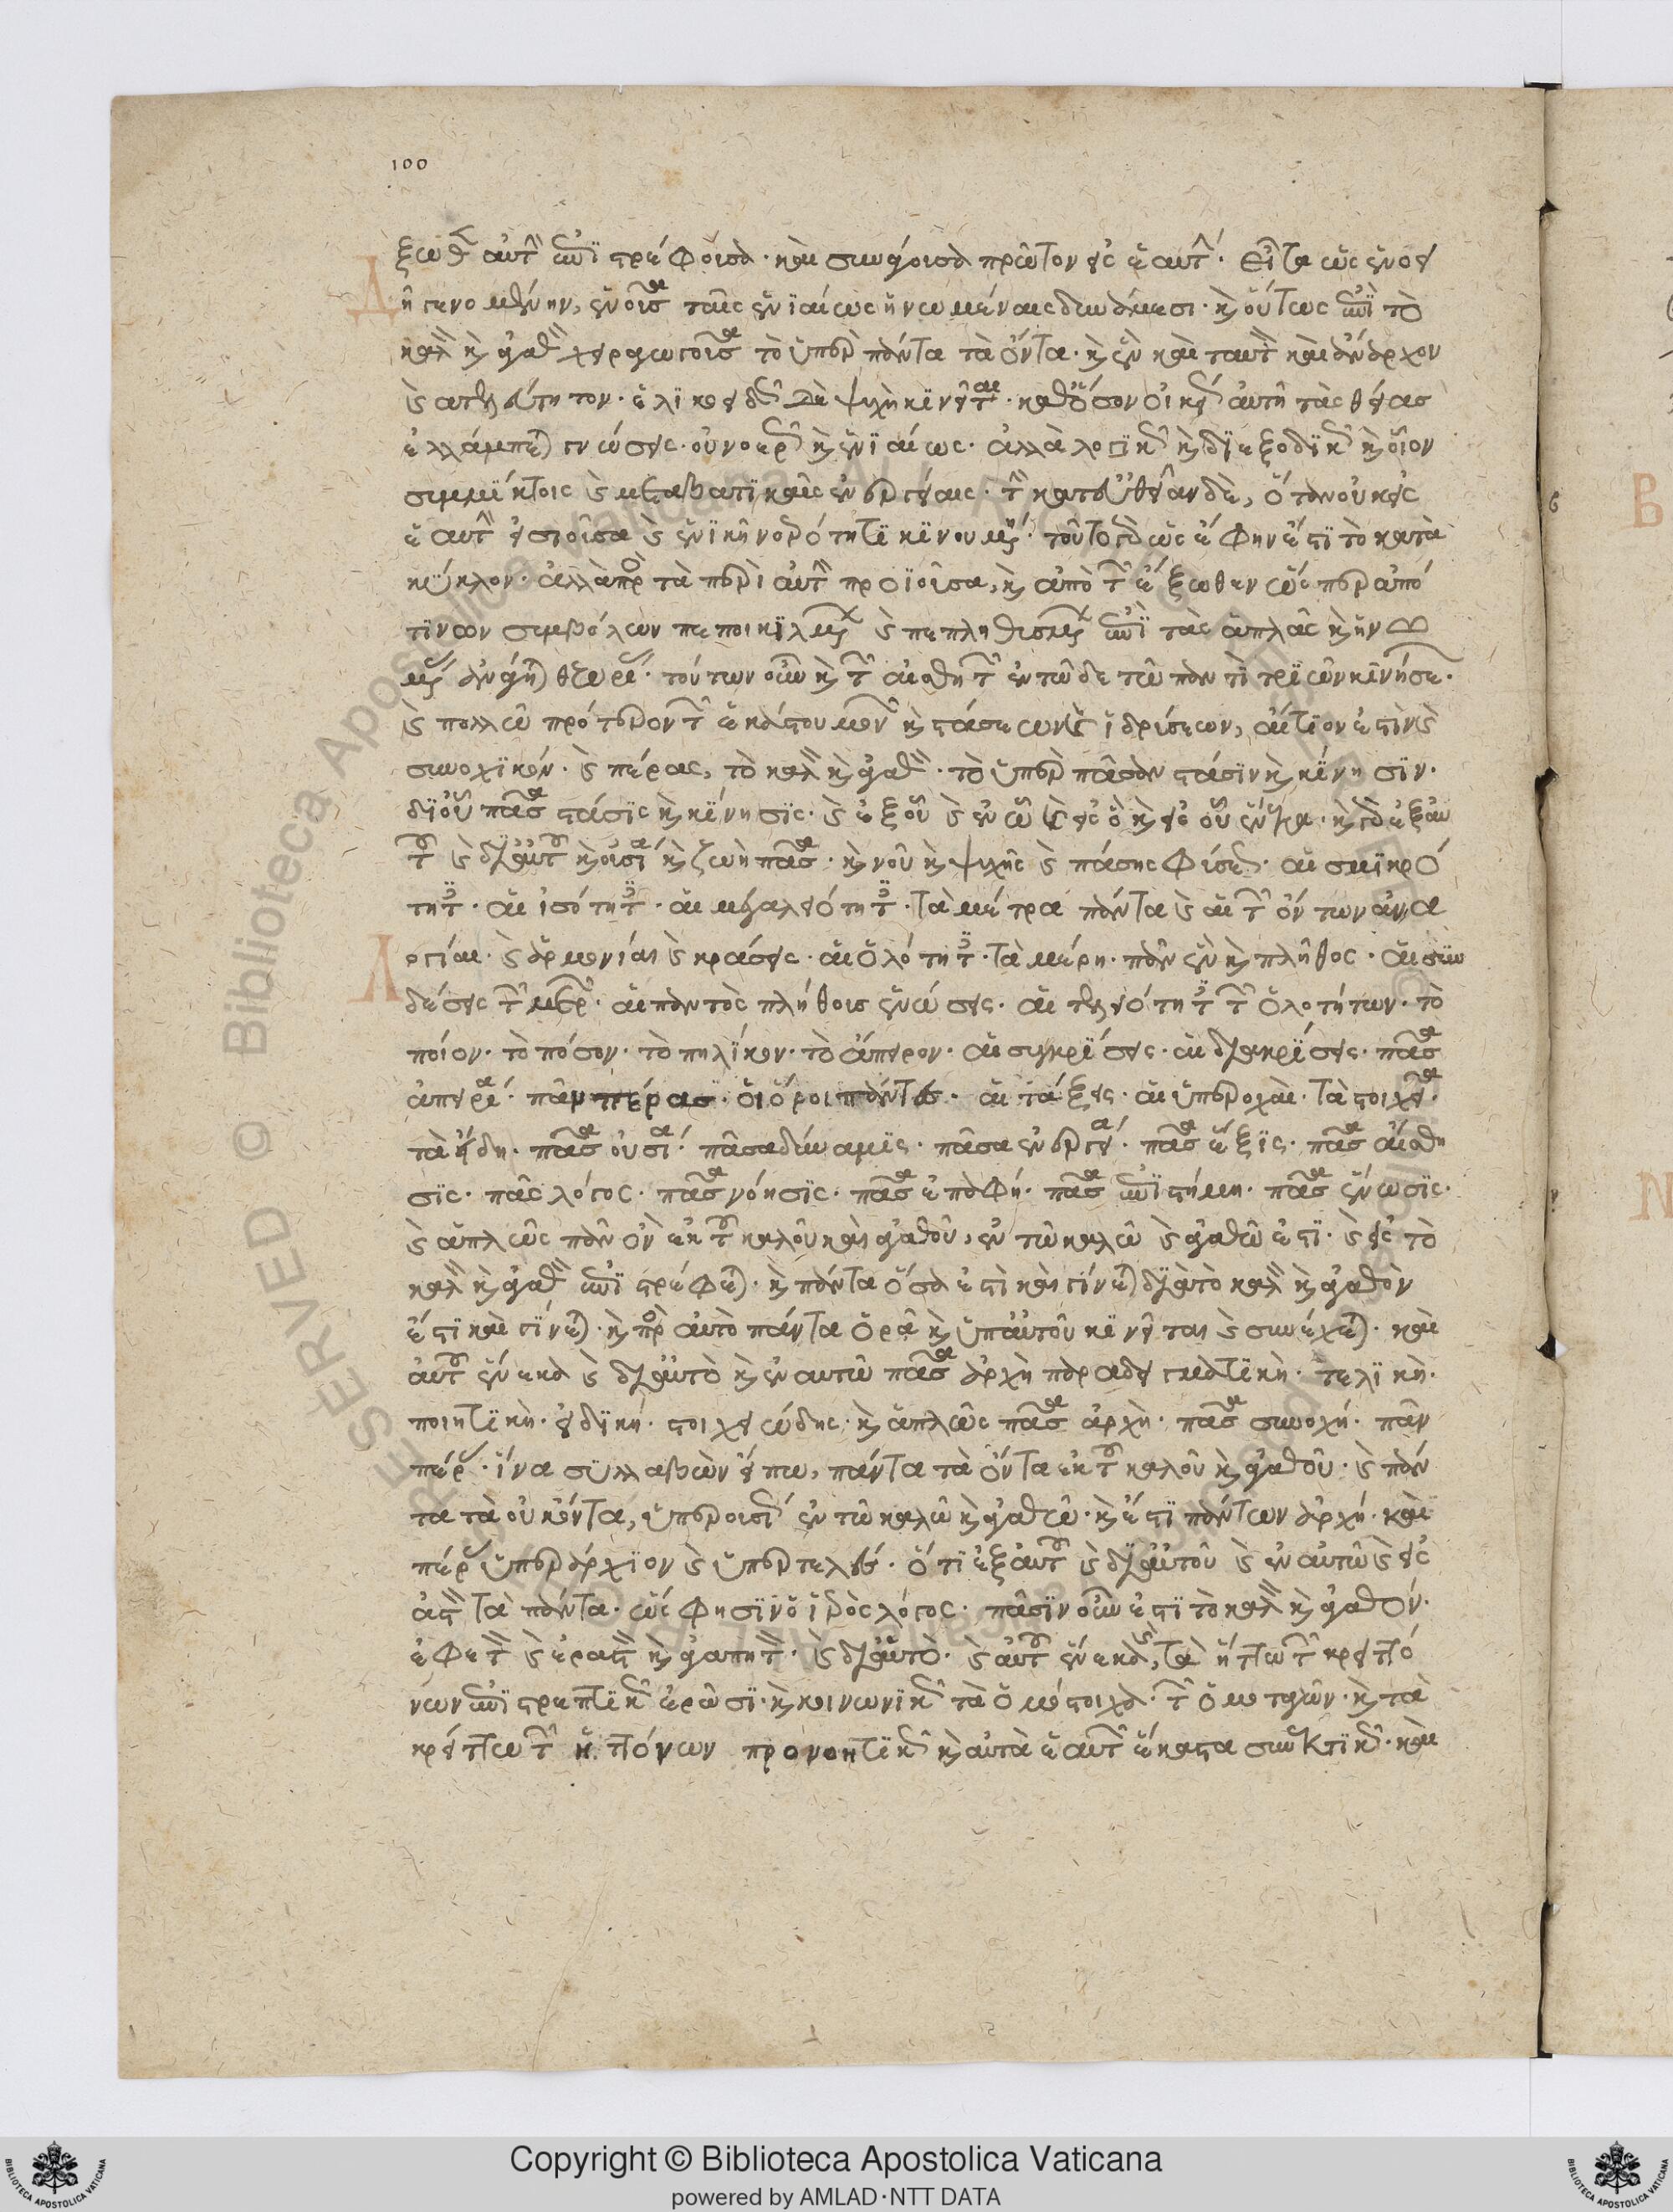 100
ξωθεν αὐτὴν ἐπιστρέφουσα· καὶ συνάγουσα πρῶτον εἰς ἑαυτήν· εἶτα ὡς ἑνοει
δῆ γενομένην, ἑνοῦσα ταῖς ἑνιαίως ἡνωμέναις δυνάμεσι· καὶ οὕτως ἐπὶ τὸ
καλὸν καὶ ἀγαθὸν χειραγωγοῦσα τὸ ὑπὲρ πάντα τὰ ὄντα· καὶ ἓν καὶ ταυτὸν καὶ ἄναρχον
καὶ ἀτελεύτητον· ἑλικοειδῶς δὲ ψυχὴ κινεῖται· καθόσον οἰκείως αὐτῇ τὰς θείας
ἐλλάμπεται γνώσεις· οὐ νοερῶς καὶ ἑνιαίως· ἀλλὰ λογικῶς καὶ διεξοδικῶς καὶ οἷον
συμμίκτοις καὶ μεταβατικαῖς ἐνεργείαις· τὴν κατ' εὐθεῖαν δὲ, ὅταν οὐκ εἰς
ἑαυτὴν εἰσιοῦσα καὶ ἑνικῇ νοερότητι κινουμένη· τοῦτο γὰρ ὡς ἔφην ἐστὶ τὸ κατὰ
κύκλον· ἀλλὰ πρὸς τὰ περὶ αὐτὴν προϊοῦσα, καὶ ἀπὸ τῶν ἔξωθεν ὥσπερ ἀπό
τινων συμβόλων πεποικιλμένων καὶ πεπληθυσμένων ἐπὶ τὰς ἁπλᾶς καὶ ἡνω
μένας ἀνάγεται θεωρίας· τούτων οὖν καὶ τῶν αἰσθητῶν ἐν τῷδε τῷ παντὶ τριῶν κινήσεων·
καὶ πολλῷ πρότερον τῶν ἑκάστου μονῶν καὶ στάσεων καὶ ἱδρύσεων, αἴτιόν ἐστι καὶ
συνοχικόν· καὶ πέρας, τὸ καλὸν καὶ ἀγαθόν· τὸ ὑπὲρ πᾶσαν στάσιν καὶ κίνησιν·
δι' οὗ πᾶσα στάσις καὶ κίνησις· καὶ ἐξ οὗ καὶ ἐν ᾧ καὶ εἰς ὃ καὶ οὗ ἕνεκα· καὶ γὰρ ἐξ αὐ
τοῦ καὶ δι' αὐτοῦ καὶ οὐσία καὶ ζωὴ πᾶσα· καὶ νοῦ καὶ ψυχῆς καὶ πάσης φύσεως· αἱ σμικρό
τητες· αἱ ἰσότητες· αἱ μεγαλειότητες· τὰ μέτρα πάντα καὶ αἱ τῶν ὄντων ἀνα
λογίαι· καὶ ἁρμονίαι καὶ κράσεις· αἱ ὁλότητες· τὰ μέρη· πᾶν ἓν καὶ πλῆθος· αἱ συν
δέσεις τῶν μερῶν· αἱ παντὸς πλήθους ἑνώσεις· αἱ τελειότητες τῶν ὁλοτήτων· τὸ
ποίον· τὸ πόσον· τὸ πηλίκον· τὸ ἄπειρον· αἱ συγκρίσεις· αἱ διακρίσεις· πᾶσα
ἀπειρία· πᾶν πέρας· οἱ ὅροι πάντες· αἱ τάξεις· αἱ ὑπεροχαὶ· τὰ στοιχεῖα·
τὰ εἴδη· πᾶσα οὐσία· πᾶσα δύναμις· πᾶσα ἐνέργεια· πᾶσα ἕξις· πᾶσα αἴσθη
σις· πᾶς λόγος· πᾶσα νόησις· πᾶσα ἐπαφή· πᾶσα ἐπιστήμη· πᾶσα ἕνωσις·
καὶ ἁπλῶς πᾶν ὂν ἐκ τοῦ καλοῦ καὶ ἀγαθοῦ, ἐν τῷ καλῷ καὶ ἀγαθῷ ἐστι· καὶ εἰς τὸ
καλὸν καὶ ἀγαθὸν ἐπιστρέφεται· καὶ πάντα ὅσα ἐστὶ καὶ γίνεται διὰ τὸ καλὸν καὶ ἀγαθὸν
ἔστι καὶ γίνεται· καὶ πρὸς αὐτὸ πάντα ὁρᾷ καὶ ὑπ' αὐτοῦ κινεῖται καὶ συνέχεται· καὶ
αὐτοῦ ἕνεκα καὶ δι' αὐτὸ καὶ ἐν αὐτῷ πᾶσα ἀρχὴ παραδειγματικὴ· τελικὴ·
ποιητικὴ· εἰδική· στοιχειώδης· καὶ ἁπλῶς πᾶσα ἀρχὴ· πᾶσα συνοχή· πᾶν
πέρας· ἵνα συλλαβὼν εἴπω, πάντα τὰ ὄντα ἐκ τοῦ καλοῦ καὶ ἀγαθοῦ· καὶ πάν
τα τὰ οὐκ ὄντα, ὑπερουσίως ἐν τῷ καλῷ καὶ ἀγαθῷ· καὶ ἔστι πάντων ἀρχή· καὶ
πέρας ὑπεράρχιον καὶ ὑπερτελές· ὅτι ἐξ αὐτοῦ καὶ δι' αὐτοῦ καὶ ἐν αὐτῷ καὶ εἰς
αὐτὸ τὰ πάντα· ὥς φησιν ὁ ἱερὸς λόγος· πᾶσιν οὖν ἐστι τὸ καλὸν καὶ ἀγαθόν·
ἐφετὸν καὶ ἐραστὸν καὶ ἀγαπητόν· καὶ δι' αὐτὸ· καὶ αὐτοῦ ἕνεκα, καὶ τὰ ἥττω τῶν κρειττό
νων ἐπιστρεπτικῶς ἐρῶσι· καὶ κοινωνικῶς τὰ ὁμόστοιχα· τῶν ὁμοταγῶν· καὶ τὰ
κρείττω τῶν ἡττόνων προνοητικῶς καὶ αὐτὰ ἑαυτῶν ἕκαστα συνεκτικῶς· καὶ